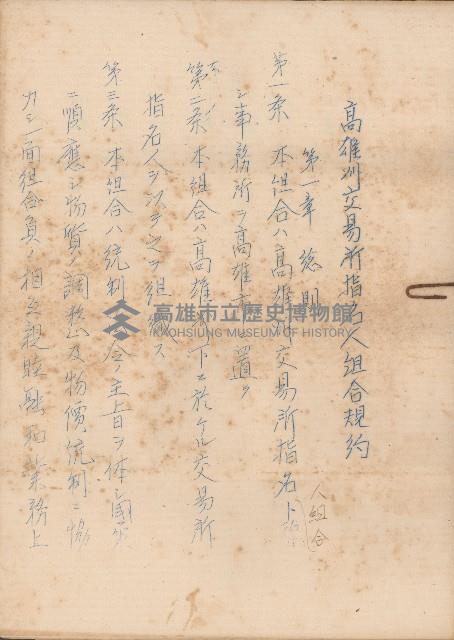 高雄州交易所指名人組合規約
第一章 総則
第一条 本組合ハ高雄州交易所指名ト称
人組合
シ事務所ヲ高雄市ニ置ク
第二条 本組合ハ高雄州下ニ於ケル交易所
指名人ヲ以テ之ヲ組織ス
第三条 本組合ハ統制 令ノ主旨ヲ体シ國策
ニ順應シ物質ノ調整及物價ノ統制ニ協
力シ一面組合員ノ相互親睦融和業務上
高雄市立歷史博物館
KAOHSIUNG MUSEUM OF HISTORY